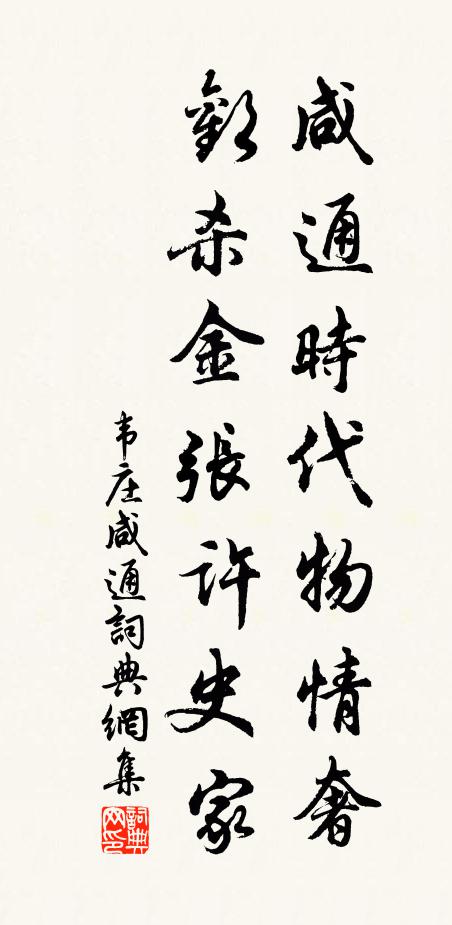 咸通時代物情奢
歡杀金張許史家
韦庄咸通詞典網集
詞典网印